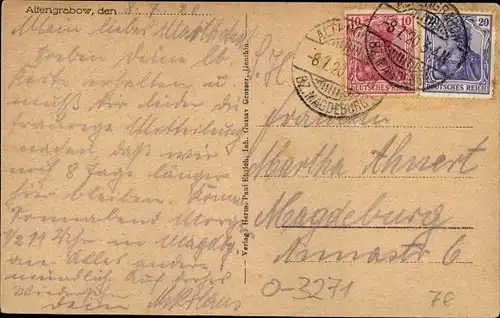 Altengrabow, den 8. 7. 20
Mein liebes Marthchen
Soeben Deine lb
Karte erhalten u
muß Dir leider die
traurige Mitteilung
machen daß wir
noch 8 Tage länger
hier bleiben. Komme
Sonnabend Morg.
1/2 11 Uhr in Magdbg.
an Alles andere
mündlich Auf frohes
Wiedersehen
Dein Nikolaus
Verlag: Herm. Paul Ehrich, Inh. Gustav Grosser, Genthin.
10 10
DEUTSCHES REICH
20
DEUTSCHES REICH
ALTENGRABOW
BZ. MAGDEBURG
Fräulein
Martha Ahnert
Magdeburg
Annastr 6
0-3271
7E